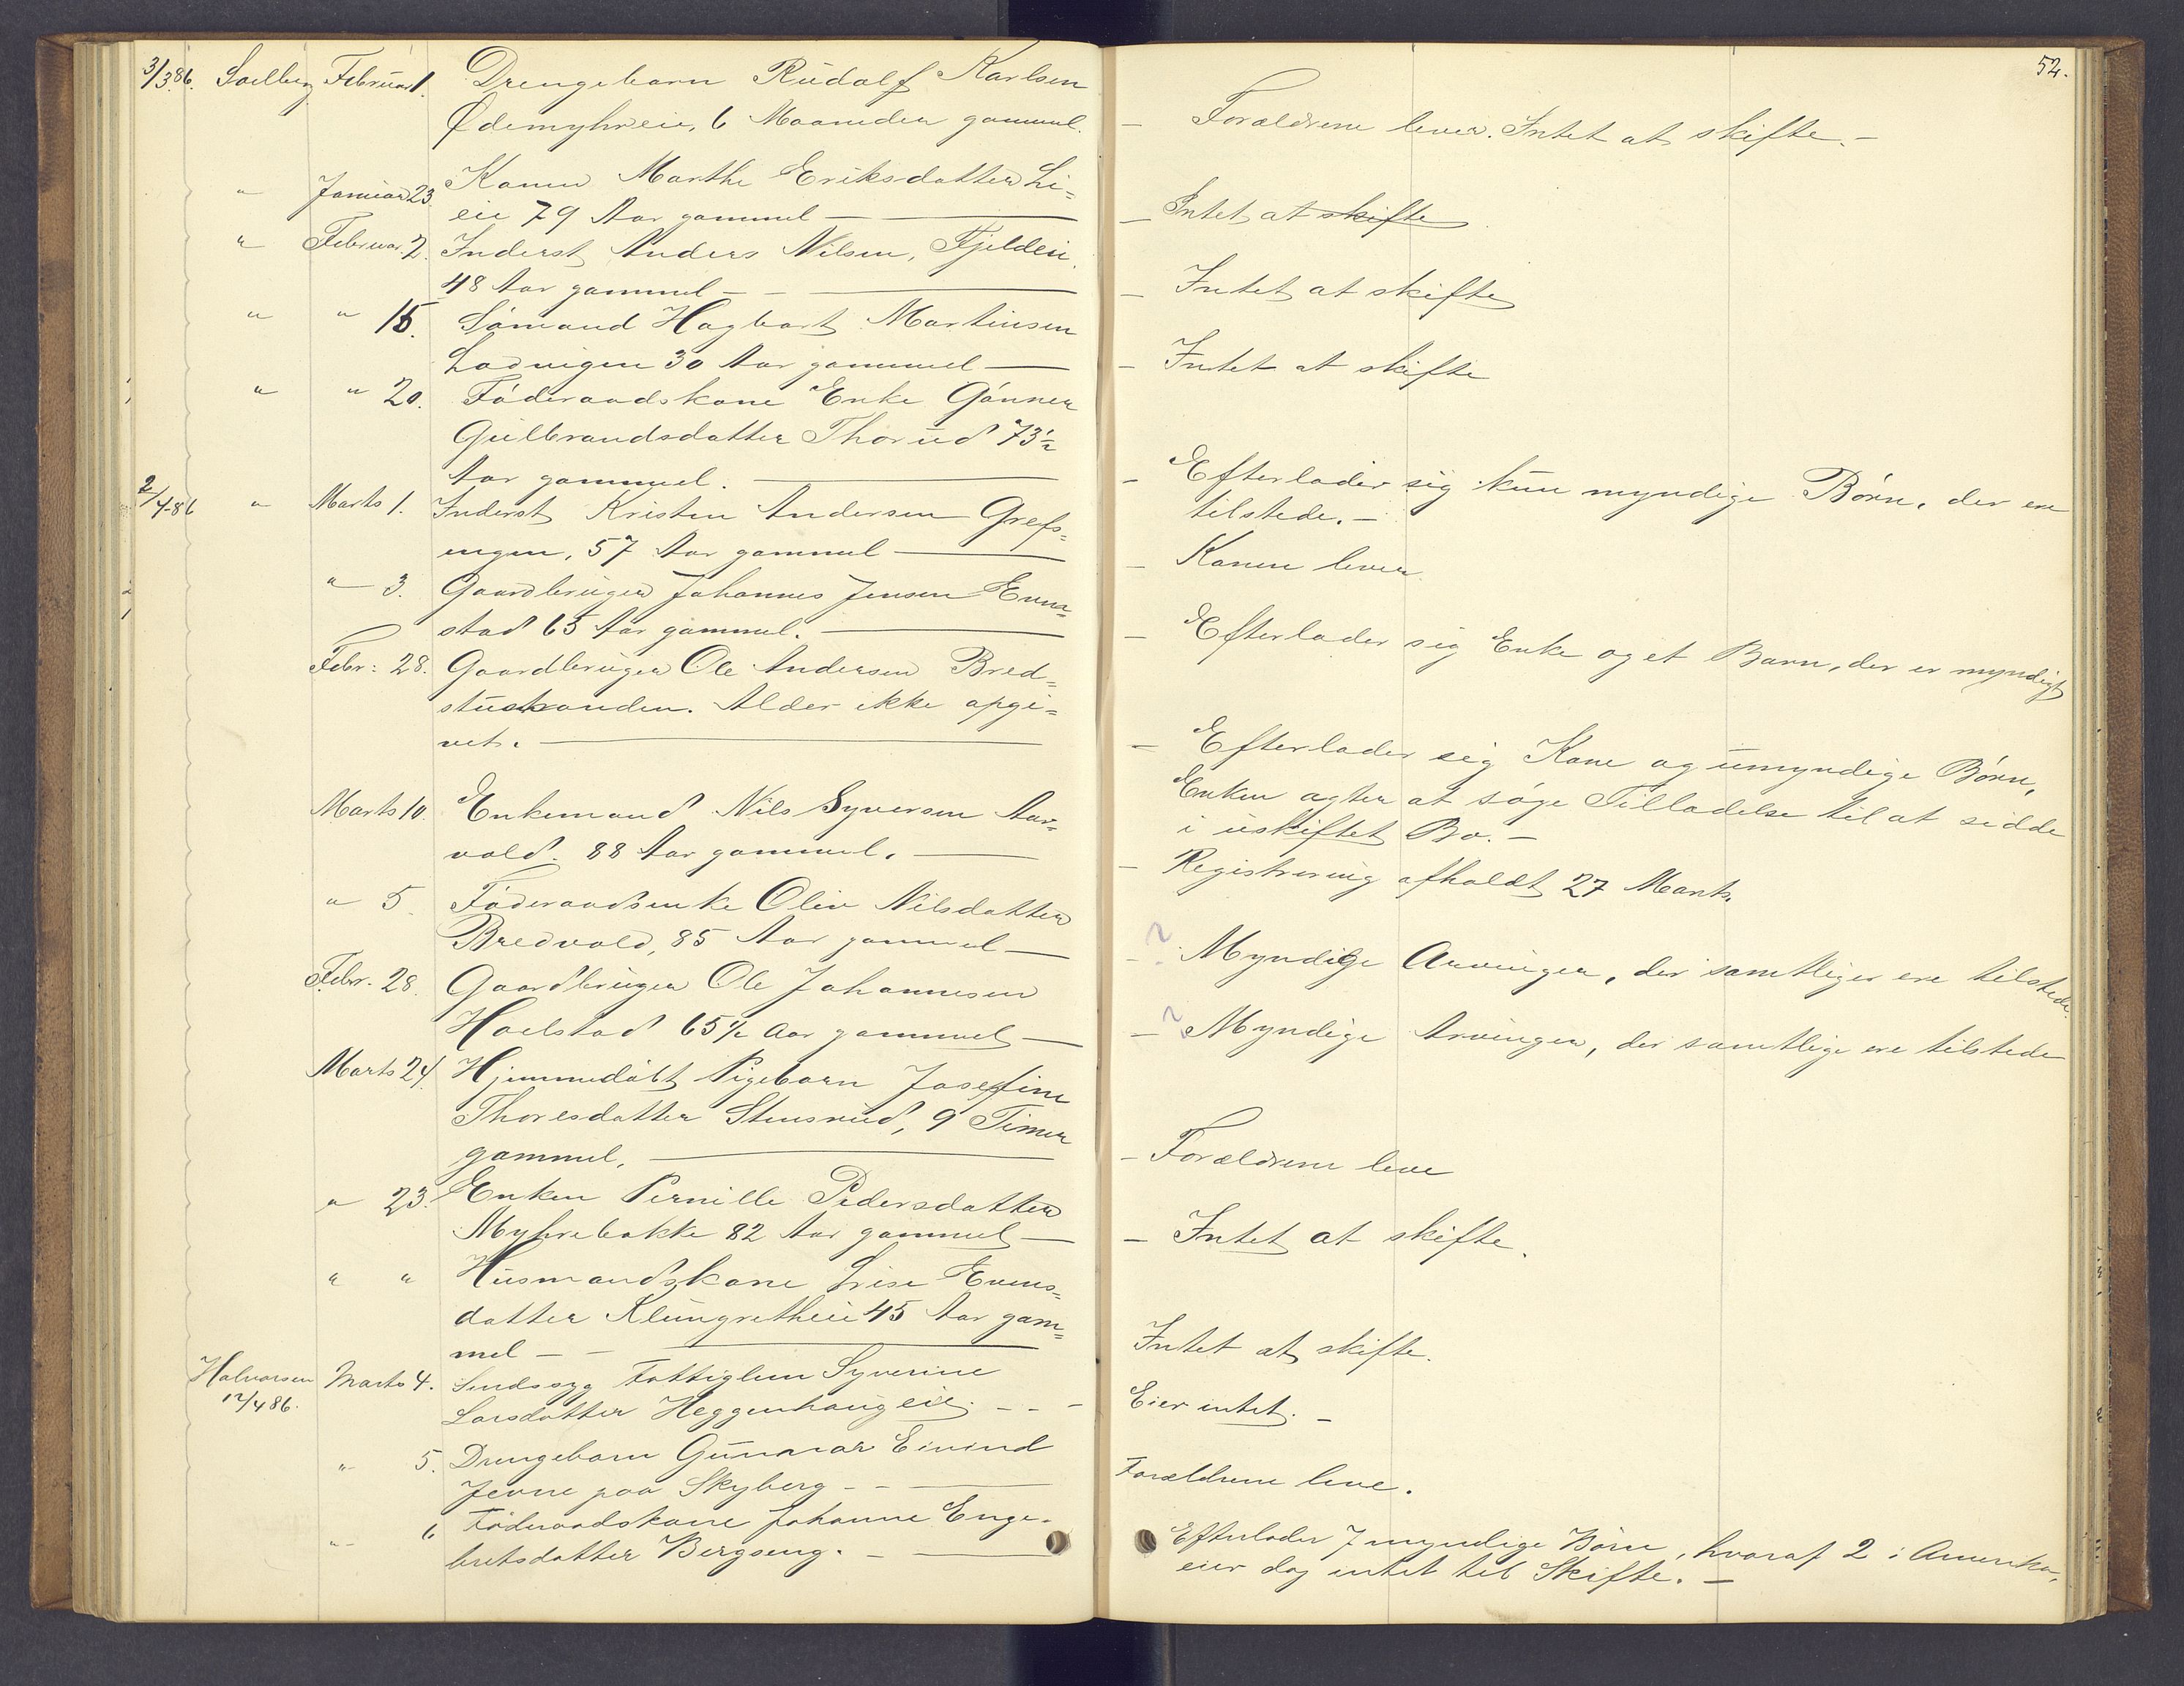 52.
3/3.86. Soelberg Februar 1. Drengebarn Rudolf Karlsen
Ødemyhreie, 6 Maaneder gammel.
— Forældrene lever. Intet at skifte. —
" Januar 23. Kone Marthe Eriksdatter Li=
eie 79 Aar gammel —
— Intet at skifte
" Februar 2. Inderst Anders Nilsen, Fjeldeie
48 Aar gammel —
— Intet at skifte
" " 15. Sømand Hagbart Martinsen
Ladvigen 30 Aar gammel —
— Intet at skifte
" " 20. Føderaadskone Enke Gønner
Gulbrandsdatter Thorud 73½
Aar gammel. —
— Efterlader sig kun myndige Børn, der ere
tilstede. —
2/4-86 " Marts 1. Inderst Kristen Andersen Grefs=
engen, 57 Aar gammel —
— Konen lever.
" 3. Gaardbruger Johannes Jensen Even=
stad 65 Aar gammel. —
— Efterlader sig Enke og et Barn, der er myndigt
Febr: 28. Gaardbruger Ole Andersen Bred=
. Alder ikke opgi=
vet. —
— Efterlader sig Kone og umyndige Børn,
Enken agter at søge Tilladelse til at sidde
i uskiftet Bo. —
Marts 10. Enkemand Nils Syversen Aar=
vold. 88 Aar gammel. —
— Registrering afholdt 27 Marts
" 5. Føderaadsenke Oline Nilsdatter
Bredvold, 85 Aar gammel —
— ? Myndige Arvinger, der samtlige ere tilstede.
Febr. 28. Gaardbruger Ole Johannesen
Hoelstad 65½ Aar gammel —
— ? Myndige Arvinger, der samtlige ere tilstede
Marts 24. Hjemmedøbt Pigebarn Josefine
Thoresdatter Stensrud, 9 Timer
gammel. —
— Forældrene leve
" 23. Enken Pernille Pedersdatter
Myhrebakke 82 Aar gammel —
— Intet at skifte.
" " Husmandskone Lise Evens=
datter Klungretheie 45 Aar gam=
mel —
Intet at skifte.
Halvorsen Marts 4. Sindssyg Fattiglem Syverine
12/4 86. Larsdatter Heggenhaugeie. — — —
Eier intet. —
" 5. Drengebarn Gunnar Eivind
Jevne paa Skyberg — —
Forældrene leve.
" 6 Føderaadskone Johanne Enge=
bretsdatter Bergseng. —
Efterlader 7 myndige Børn, hvoraf 2 i Amerika,
eier dog intet til Skifte. —